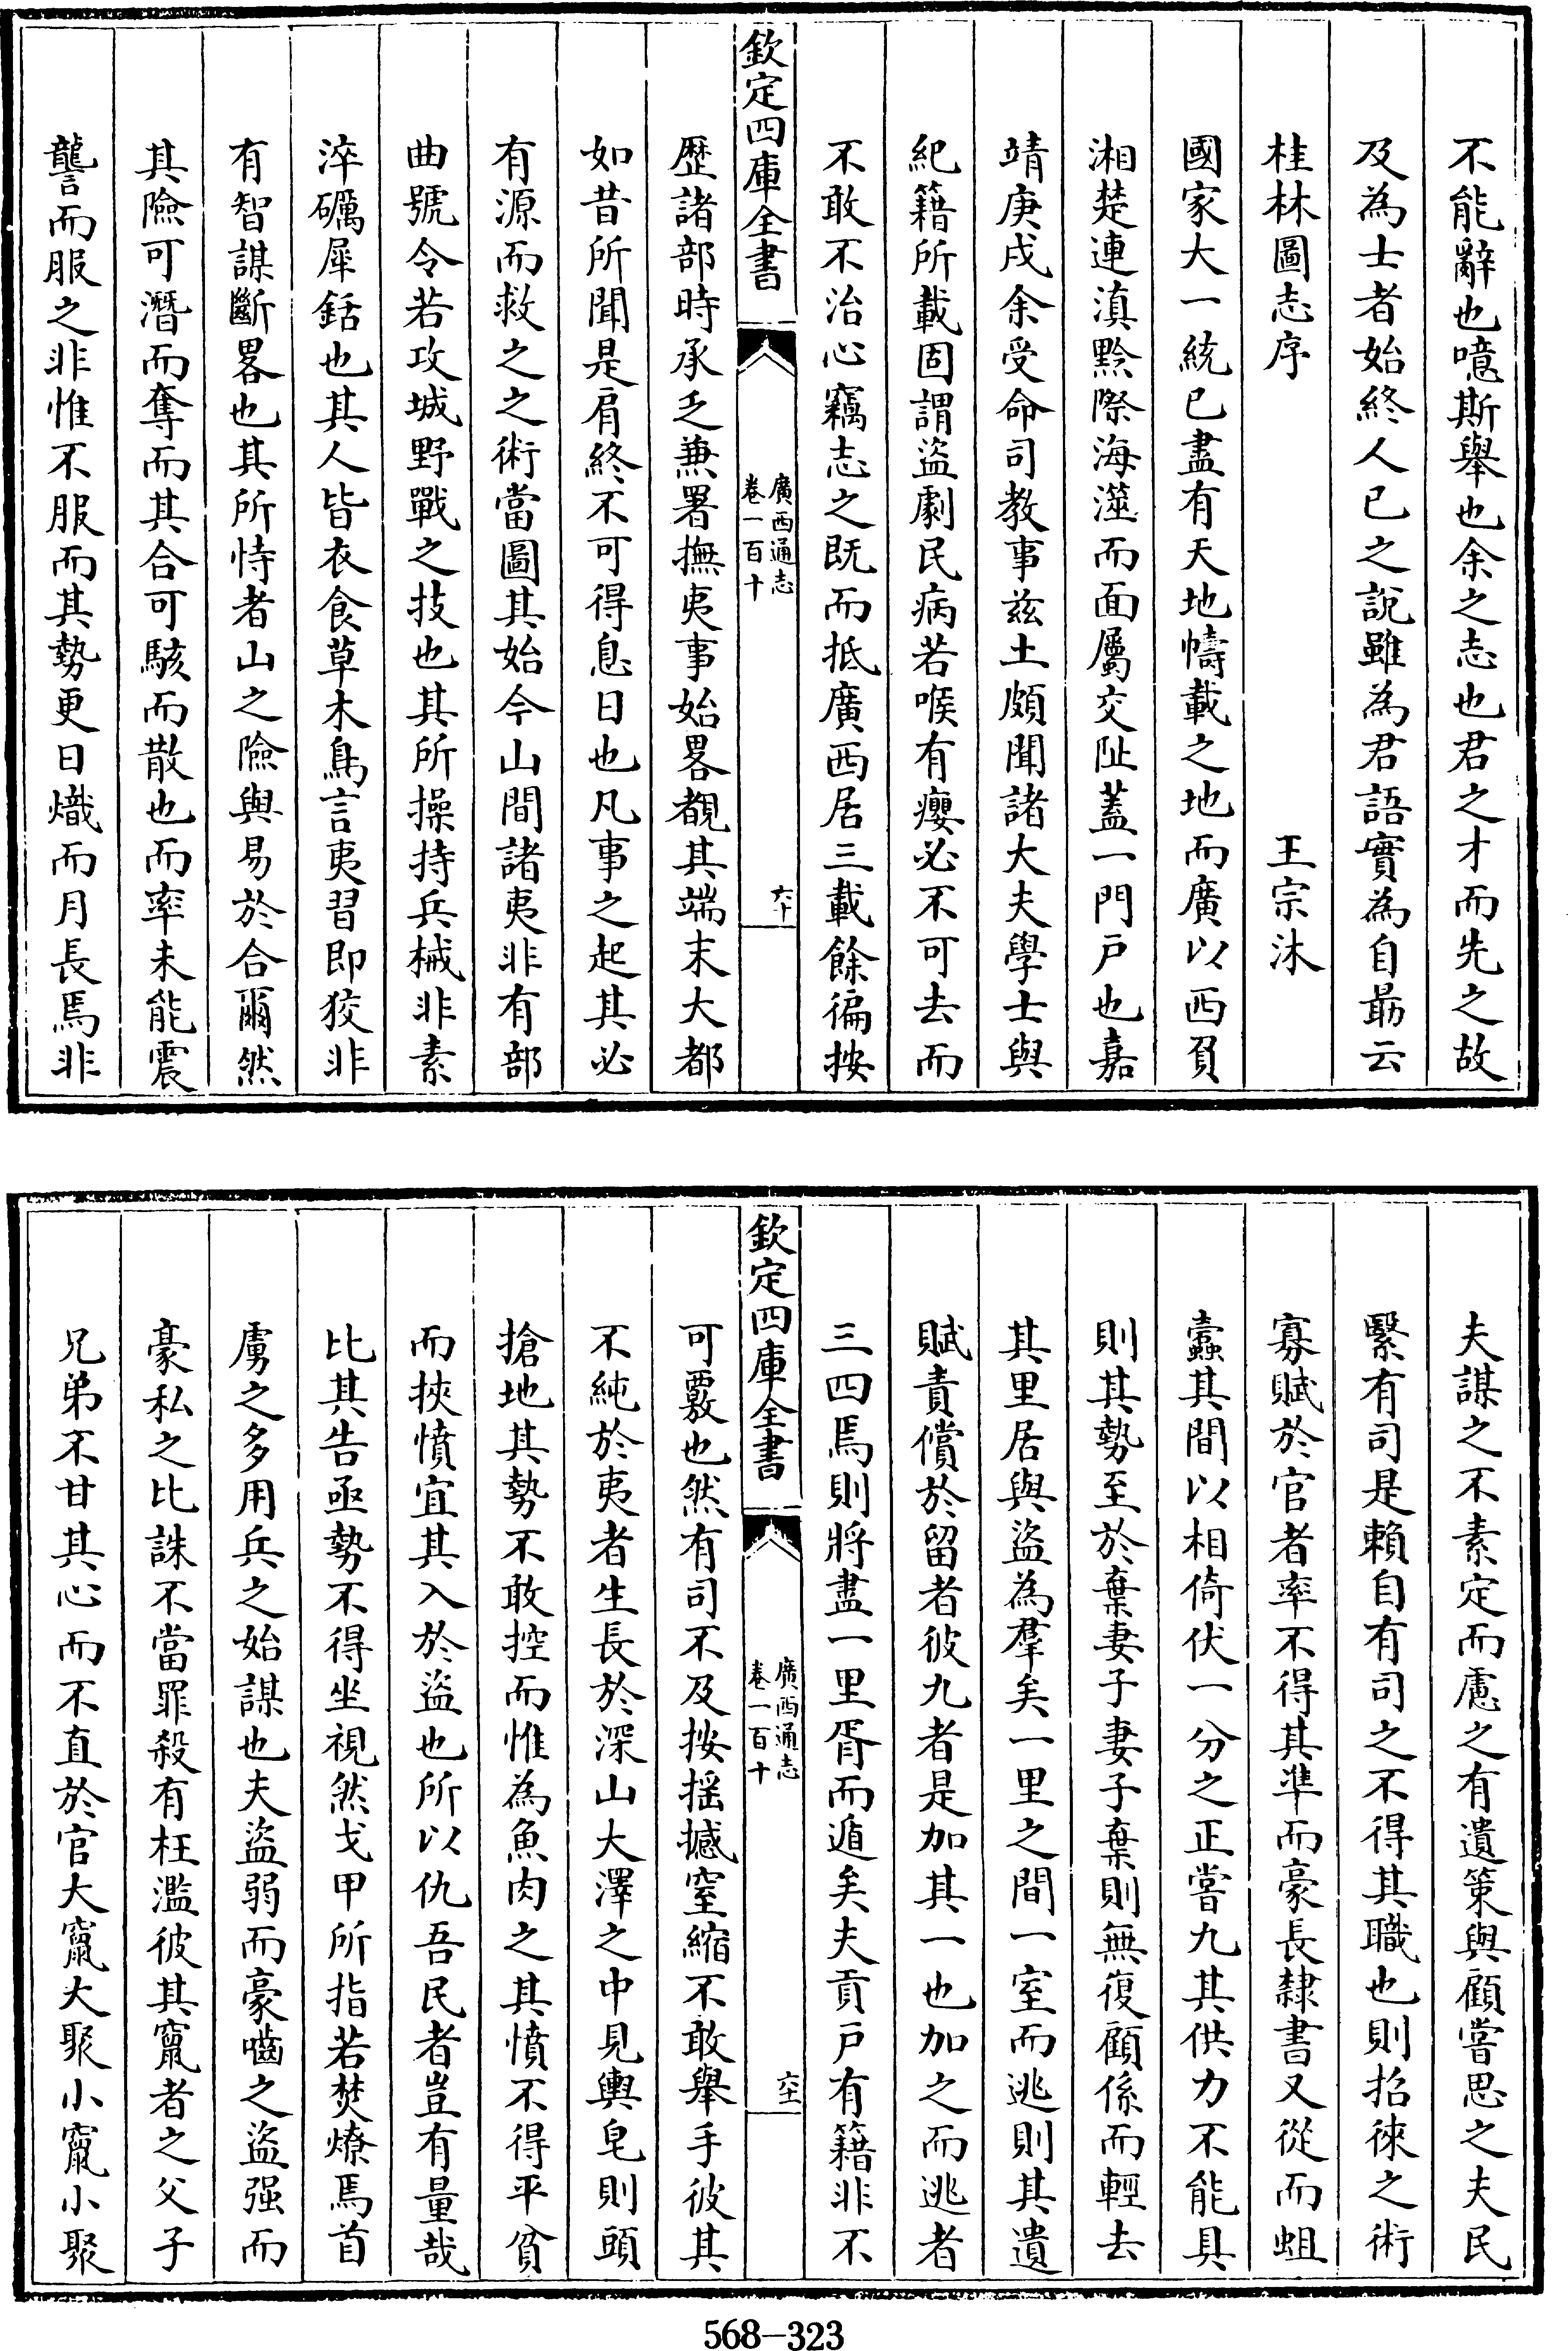 不能辭也噫斯舉也余之志也君之才而先之故
及為士者始終人已之說雖為君語實為自勗云
桂林圖志序 王宗沐
國家大一統已盡有天地幬載之地而廣以西負
湘楚連滇黔際海澨而面屬交阯蓋一門戶也嘉
靖庚戌余受命司教事兹土頗聞諸大夫學士與
紀籍所載固謂盜劇民病若喉有癭必不可去而
不敢不治心竊志之既而抵廣西居三載餘徧按
欽定四庫全書 廣西通志 卷一百十 六十
歷諸部時承乏兼署撫夷事始畧覩其端末大都
如昔所聞是肩終不可得息日也凡事之起其必
有源而救之之術當圖其始今山間諸夷非有部
曲號令若攻城野戰之技也其所操持兵械非素
淬礪犀銛也其人皆衣食草木鳥言夷習即狡非
有智謀斷畧也其所恃者山之險與易於合爾然
其險可潛而奪而其合可駭而散也而率未能震
讋而服之非惟不服而其勢更日熾而月長焉非
夫謀之不素定而慮之有遺策與顧嘗思之夫民
緊有司是賴自有司之不得其職也則招徠之術
寡賦於官者率不得其凖而豪長隸書又從而蛆
蠧其間以相倚伏一分之正嘗九其供力不能具
則其勢至於棄妻子妻子棄則無復顧係而輕去
其里居與盜為羣矣一里之間一室而逃則其遺
賦責償於留者彼九者是加其一也加之而逃者
三四焉則將盡一里胥而遁矣夫貢戶有籍非不
欽定四庫全書 廣西通志 卷一百十 六十一
可覈也然有司不及按搖撼窒縮不敢舉手彼其
不純於夷者生長於深山大澤之中見輿皂則頭
搶地其勢不敢控而惟為魚肉之其憤不得平貧
而挾憤宜其入於盜也所以仇吾民者豈有量哉
比其告亟勢不得坐視然戈甲所指若焚燎焉首
虜之多用兵之始謀也夫盜弱而豪嚙之盜强而
豪私之比誅不當罪殺有枉濫彼其竄者之父子
兄弟不甘其心而不直於官大竄大聚小竄小聚
568—323